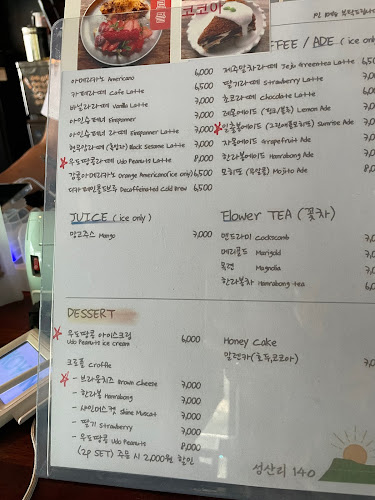 코코아
FFEE / ADE ( ice only
아메리카노 Americano 6,000
카페라떼 Cafe Latte 6,500
바닐라라떼 Vanilla Latte 7,000
아인슈페너 Einspanner 7,000
아인슈페너 라떼 Einspanner Latte 7,000
현무암라떼 (흑임자) Black Sesame Latte 7,000
우도땅콩라떼 Udo Peanuts Latte 8,000
감귤아메리카노 Orange Americano (ice only) 6,500
디카페인콜드브루 Decaffeinated Cold Brew 6,500
제주말차라떼 Jeju Greentea Latte
딸기라떼 Strawberry Latte
초코라떼 Chocolate Latte
Lemon Ade
일출봉에이드 Sunrise Ade
자몽에이드 Grapefruit Ade
한라봉에이드 Hanrabong Ade
모히또 (무알콜) Mojito Ade
JUICE ( ice only )
망고주스 Mango 7,000
Flower TEA (꽃차)
맨드라미 Cockscomb 7,000
메리골드 Marigold 7,000
목련 Magnolia 7,000
한라봉차 Hanrabong tea 6,
DESSERT
우도땅콩 아이스크림 6,000
Udo Peanuts ice cream
크로플 Croffle
- 브라운치즈 Brown Cheese 7,000
- 한라봉 Hanrabong 7,000
- 샤인머스켓 Shine Muscat 7,000
- 딸기 Strawberry 7,000
- 우도땅콩 Udo Peanuts 8,000
(2p SET) 주문 시 2,000원 할인
Honey Cake
말렌카(호두,코코아) 7,
성산리 140